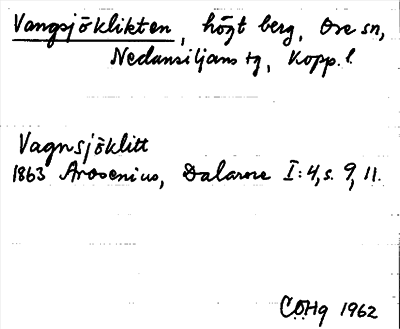 Vangsjöklikten, högt berg, Ore sn,
Nedansiljans tg, Kopp. l.
Vagnsjöklitt
1863 Arosenius, Dalarne I:4, s. 9, 11.
COHg 1962